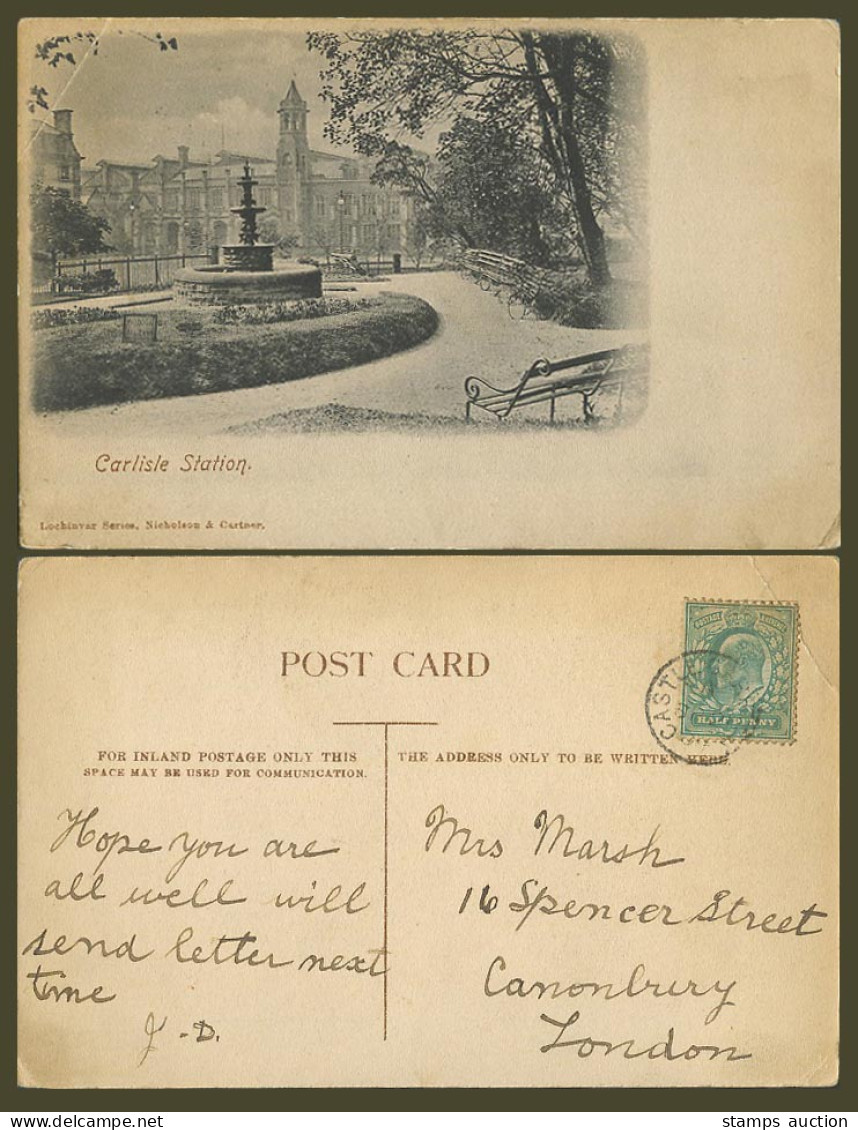 Carlisle Station.
Lochinvar Series, Nicholson & Cartner.
POST CARD
FOR INLAND POSTAGE ONLY THIS
SPACE MAY BE USED FOR COMMUNICATION.
THE ADDRESS ONLY TO BE WRITTEN HERE.
POSTAGE REVENUE
HALF PENNY
Hope you are
all well will
send letter next
time
J. D.
Mrs Marsh
16 Spencer Street
Canonbury
London
stamps auction